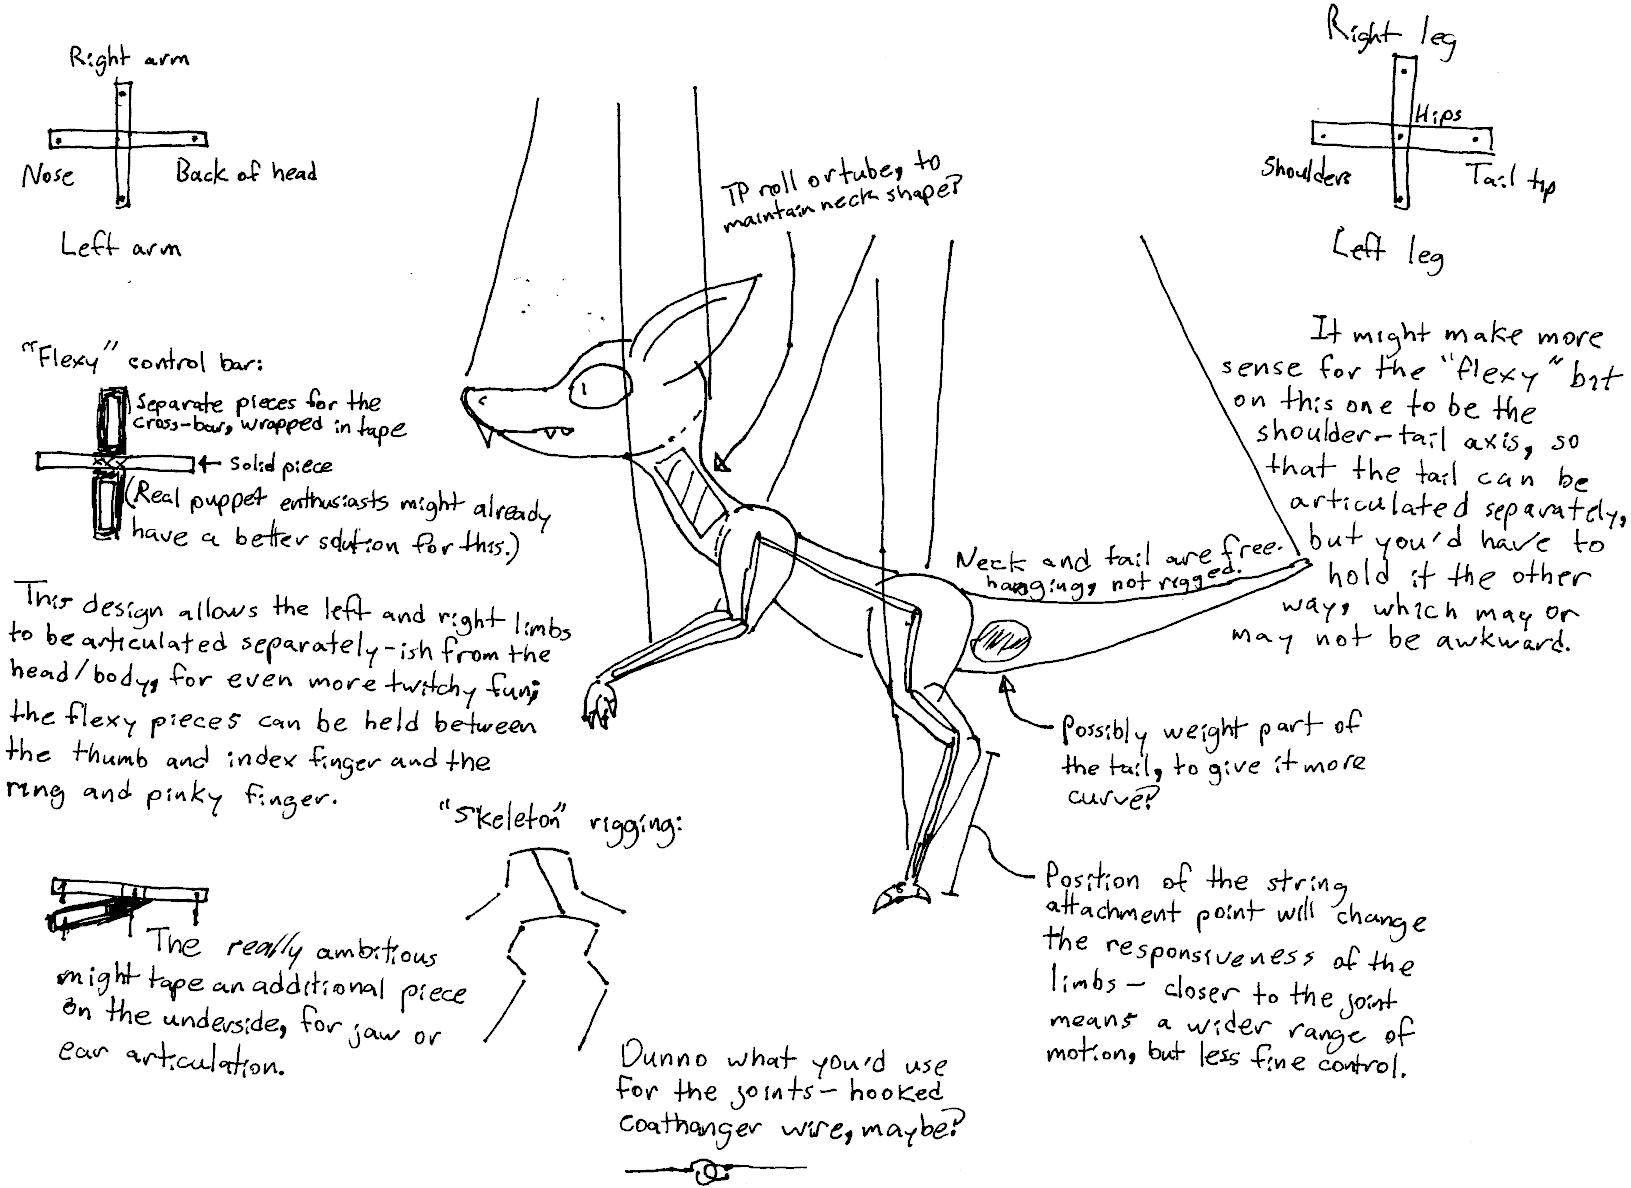 Right arm
Nose
Back of head
Left arm
"Flexy" control bar:
Separate pieces for the
cross-bar, wrapped in tape
Solid piece
(Real puppet enthusiasts might already
have a better solution for this.)
This design allows the left and right limbs
to be articulated separately-ish from the
head/body, for even more twitchy fun;
the flexy pieces can be held between
the thumb and index finger and the
ring and pinky finger.
The really ambitious
might tape an additional piece
on the underside, for jaw or
ear articulation.
"Skeleton" rigging:
Dunno what you'd use
for the joints - hooked
coathanger wire, maybe?
TP roll or tube, to
maintain neck shape?
Neck and tail are free-
hanging, not rigged.
Possibly weight part of
the tail, to give it more
curve?
Position of the string
attachment point will change
the responsiveness of the
limbs - closer to the joint
means a wider range of
motion, but less fine control.
Right leg
Hips
Shoulders
Tail tip
Left leg
It might make more
sense for the "flexy" bit
on this one to be the
shoulder-tail axis, so
that the tail can be
articulated separately,
but you'd have to
hold it the other
way, which may or
may not be awkward.